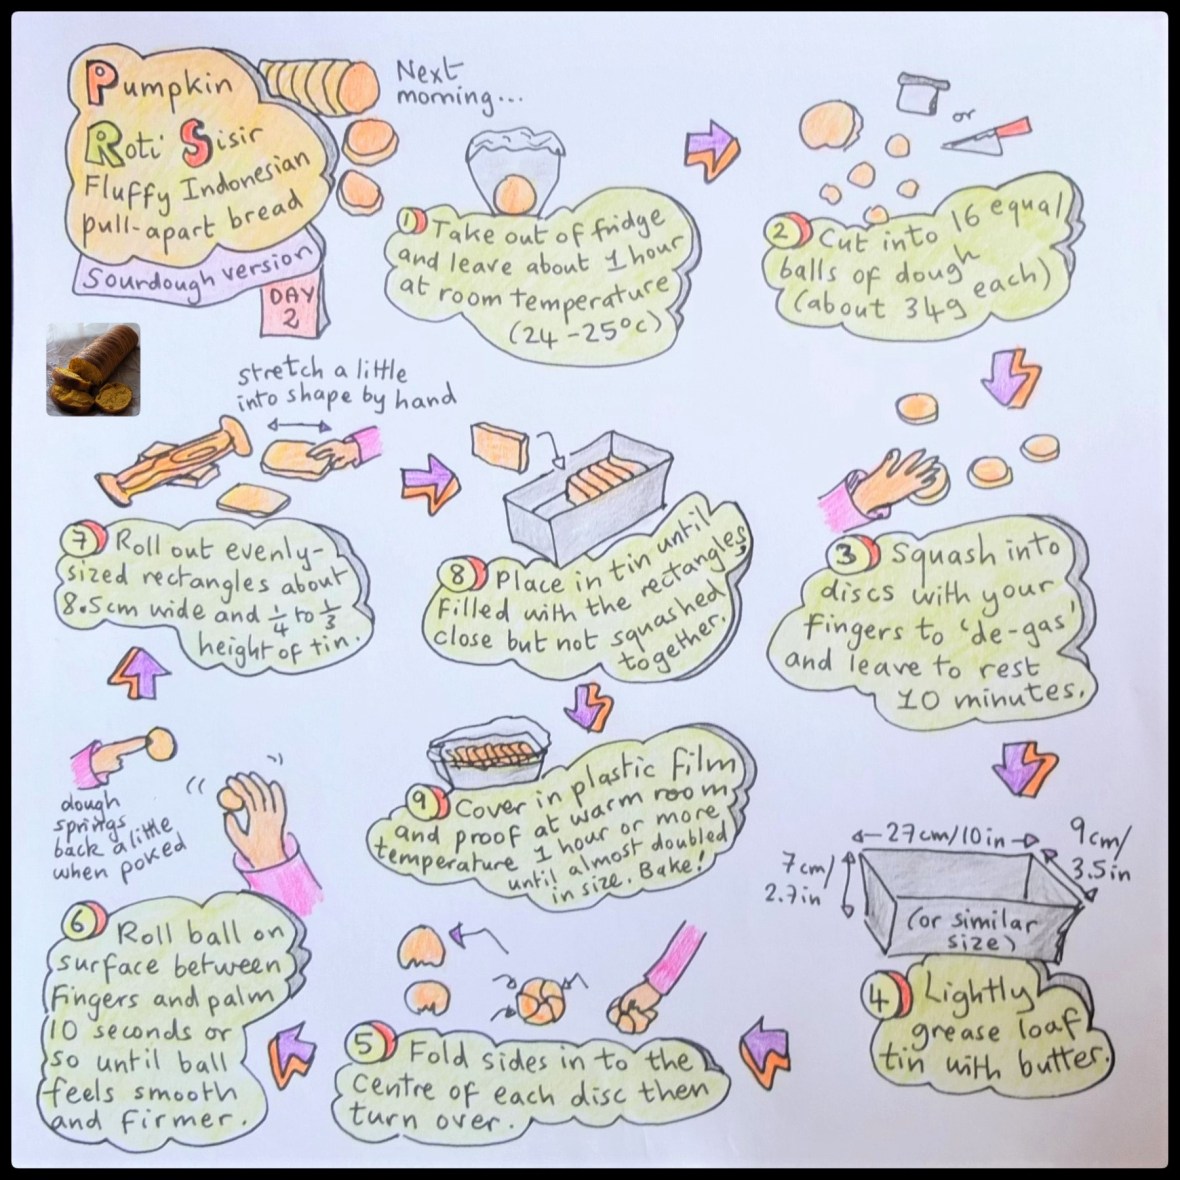 Pumpkin
Roti Sisir
Fluffy Indonesian
pull-apart bread
Sourdough version
DAY
2
Next
morning...
1 Take out of fridge
and leave about 1 hour
at room temperature
(24-25°C)
or
2 Cut into 16 equal
balls of dough
(about 34g each)
3 Squash into
discs with your
fingers to 'de-gas'
and leave to rest
10 minutes.
27cm/10in
9cm/
3.5in
7cm/
2.7in
(or similar
size)
4 Lightly
grease loaf
tin with butter.
5 Fold sides in to the
centre of each disc then
turn over.
dough
springs
back a little
when poked
6 Roll ball on
surface between
fingers and palm
10 seconds or
so until ball
feels smooth
and firmer.
stretch a little
into shape by hand
7 Roll out evenly-
sized rectangles about
8.5cm wide and 1/4 to 1/3
height of tin.
8 Place in tin until
filled with the rectangles
close but not squashed
together.
9 Cover in plastic film
and proof at warm room
temperature 1 hour or more
until almost doubled
in size. Bake!